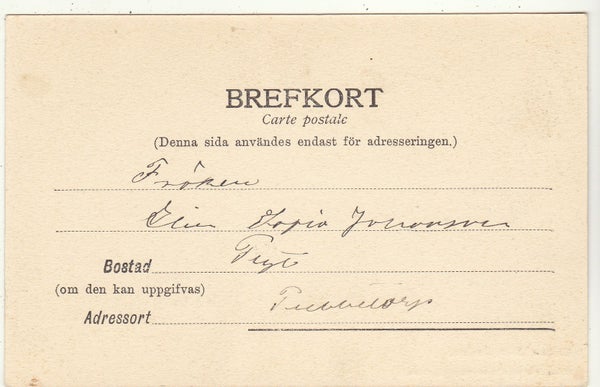 BREFKORT
Carte postale
(Denna sida användes endast för adresseringen.)
Fröken
Elin Sofia Johansson
Bostad
(om den kan uppgifvas)
Adressort